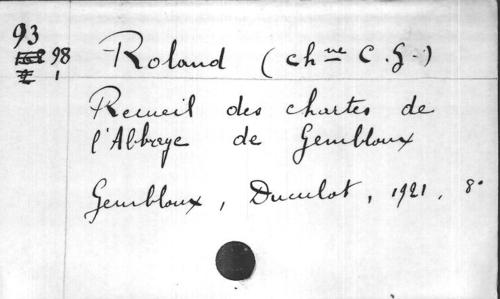 93
98 Roland (Chne C. G.)
1
Recueil des chartes de
l'Abbaye de Gembloux
Gembloux, Duculot, 1921, 8°